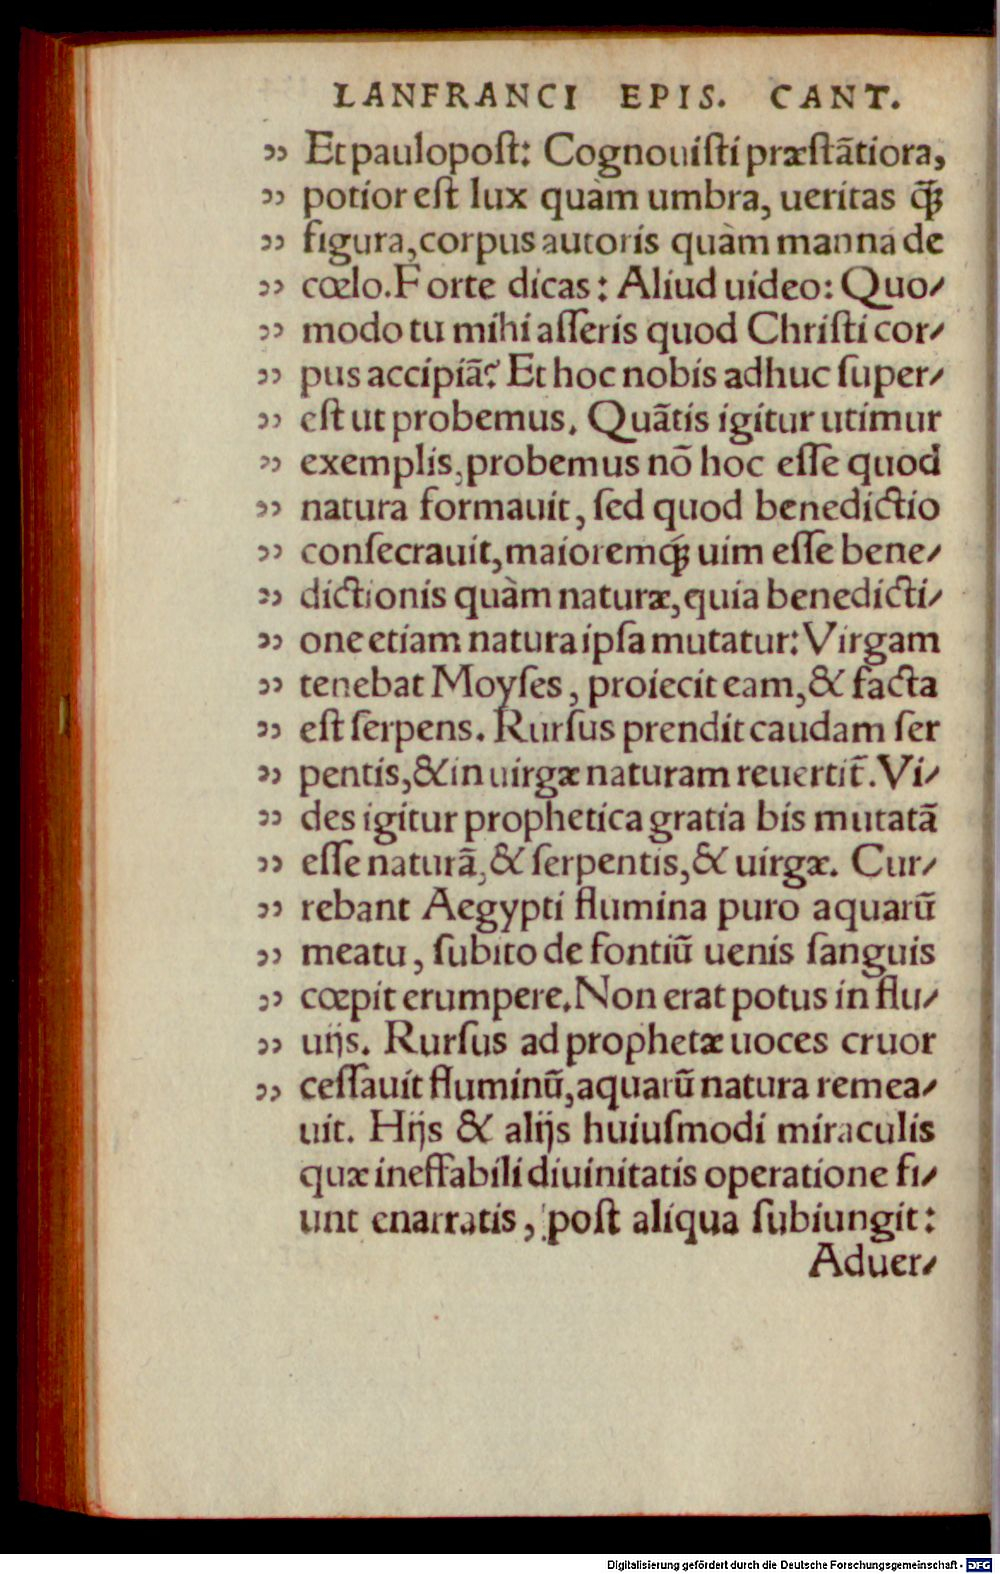 LANFRANCI EPIS. CANT.
„ Et paulo post: Cognouisti præstātiora,
„ potior est lux quàm umbra, ueritas q̃ꝫ
„ figura, corpus autoris quàm manna de
„ cœlo. Forte dicas: Aliud uideo: Quo⸗
„ modo tu mihi asseris quod Christi cor⸗
„ pus accipiā? Et hoc nobis adhuc super⸗
„ est ut probemus. Quātis igitur utimur
„ exemplis, probemus nō hoc esse quod
„ natura formauit, sed quod benedictio
„ consecrauit, maioremq́ꝫ uim esse bene⸗
„ dictionis quàm naturæ, quia benedicti⸗
„ one etiam natura ipsa mutatur: Virgam
„ tenebat Moyses, proiecit eam, & facta
„ est serpens. Rursus prendit caudam ser
„ pentis, & in uirgæ naturam reuertit̄. Vi⸗
„ des igitur prophetica gratia bis mutatā
„ esse naturā, & serpentis, & uirgæ. Cur⸗
„ rebant Aegypti flumina puro aquarū
„ meatu, subito de fontiū uenis sanguis
„ cœpit erumpere. Non erat potus in flu⸗
„ uijs. Rursus ad prophetæ uoces cruor
„ cessauit fluminū, aquarū natura remea⸗
uit. Hijs & alijs huiusmodi miraculis
quæ ineffabili diuinitatis operatione fi⸗
unt enarratis, post aliqua subiungit:
Aduer⸗
Digitalisierung gefördert durch die Deutsche Forschungsgemeinschaft - DFG